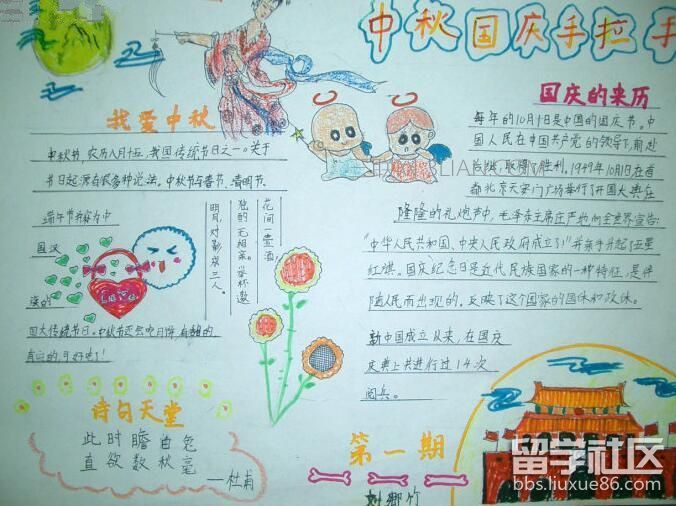 中秋国庆手拉手
我爱中秋
中秋节,农历八月十五,我国传统节日之一。关于
节日起源有很多种说法。中秋节与春节、清明节、
端午节并称为中
国汉
族的
四大传统节日。中秋节还会吃月饼,
真的
花间一壶酒,
独酌无相亲。举杯邀
明月,对影成三人。
Love
诗句天堂
此时瞻白兔
直欲数秋毫
——杜甫
国庆的来历
每年的10月1日是中国的国庆节。中
国人民在中国共产党的领导下,前赴
后继,取得了胜利。1949年10月1日在首
都北京天安门广场举行了开国大典,在
隆隆的礼炮声中,毛泽东主席庄严地向全世界宣告:
“中华人民共和国、中央人民政府成立了!”并亲手升起了五星
红旗。国庆纪念日是近代民族国家的一种特征,是伴
随人民而出现的。反映了这个国家的国体和政体。
新中国成立以来,在国庆
庆典上共进行过14次
阅兵。
第一期
刘
竹
留学社区
bbs.liuxue86.com